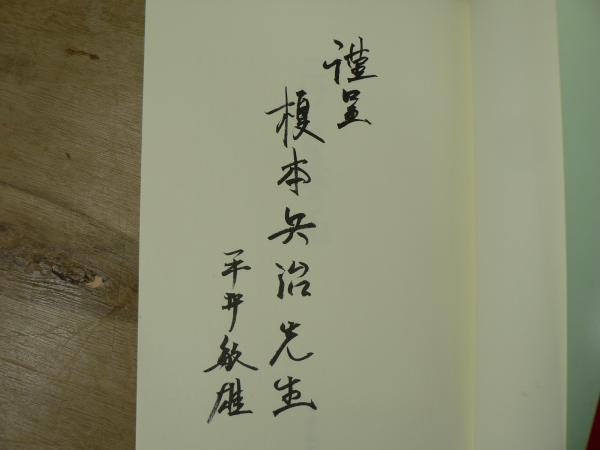 謹呈
榎本兵治先生
平井敏雄